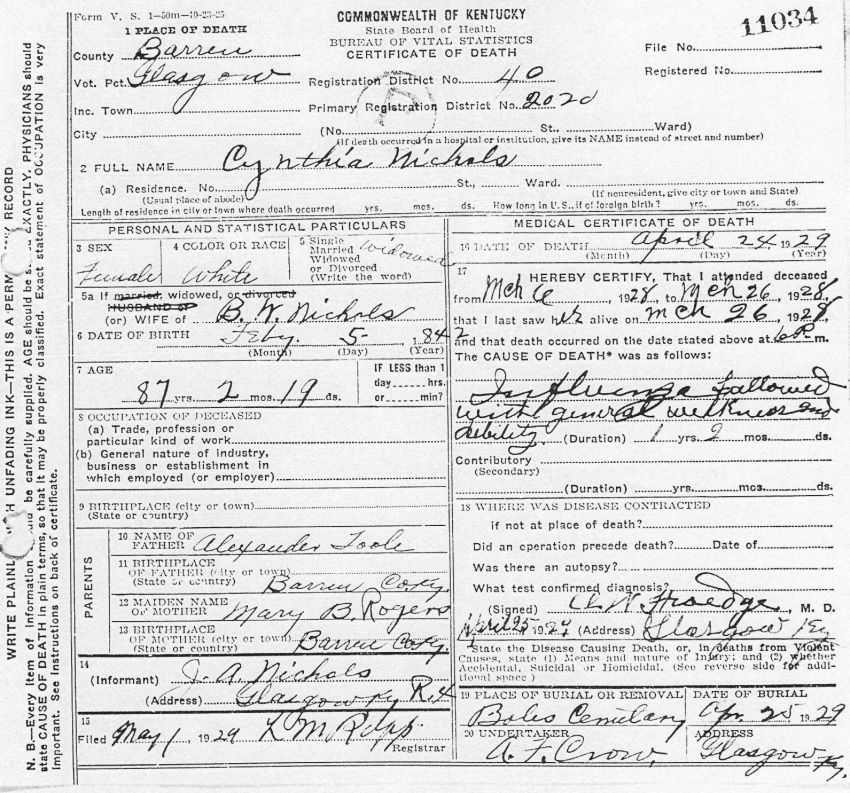 Form V. S. 1-50m-10-23-25
1 PLACE OF DEATH
COMMONWEALTH OF KENTUCKY
State Board of Health
BUREAU OF VITAL STATISTICS
CERTIFICATE OF DEATH
11034
File No.
Registered No.
County Barren
Vot. Pct. Glasgow
Registration District No. 40
Inc. Town
Primary Registration District No. 2020
City (No. St., Ward)
(If death occurred in a hospital or institution, give its NAME instead of street and number)
2 FULL NAME Cynthia Nichols
(a) Residence. No. St., Ward.
(Usual place of abode) (If nonresident, give city or town and State)
Length of residence in city or town where death occurred yrs. mos. ds. How long in U. S., if of foreign birth? yrs. mos. ds.
PERSONAL AND STATISTICAL PARTICULARS
3 SEX
Female
4 COLOR OR RACE
White
5 Single
Married
Widowed
or Divorced
(Write the word)
Widowed
5a If married, widowed, or divorced
HUSBAND of
(or) WIFE of B. W. Nichols
6 DATE OF BIRTH Feby. 5- 1842
(Month) (Day) (Year)
7 AGE
87 yrs. 2 mos. 19 ds.
IF LESS than 1
day hrs.
or min?
8 OCCUPATION OF DECEASED
(a) Trade, profession or
particular kind of work
(b) General nature of industry,
business or establishment in
which employed (or employer)
9 BIRTHPLACE (city or town)
(State or country)
PARENTS
10 NAME OF
FATHER Alexander Toole
11 BIRTHPLACE
OF FATHER (city or town)
(State or country) Barren Co Ky
12 MAIDEN NAME
OF MOTHER Mary B. Rogers
13 BIRTHPLACE
OF MOTHER (city or town)
(State or country) Barren Co Ky
14
(Informant) J. A. Nichols
(Address) Glasgow Ky R.4
15
Filed May 1, 1929
Registrar
MEDICAL CERTIFICATE OF DEATH
16 DATE OF DEATH April 24 1929
(Month) (Day) (Year)
17
I HEREBY CERTIFY, That I attended deceased
from Mch 6 1928, to Mch 26, 1928,
that I last saw her alive on Mch 26, 1928,
and that death occurred on the date stated above at 6 P. m.
The CAUSE OF DEATH* was as follows:
Influenza followed
with general weakness and
debility. (Duration) 1 yrs. 2 mos. ds.
Contributory
(Secondary)
(Duration) yrs. mos. ds.
18 WHERE WAS DISEASE CONTRACTED
if not at place of death?
Did an operation precede death? Date of
Was there an autopsy?
What test confirmed diagnosis?
(Signed) M. D.
April 25 1929 (Address) Glasgow Ky
*State the Disease Causing Death, or, in deaths from Violent
Causes, state (1) Means and nature of Injury; and (2) whether
Accidental, Suicidal or Homicidal. (See reverse side for addi-
tional space)
19 PLACE OF BURIAL OR REMOVAL
Boles Cemetary
DATE OF BURIAL
Apr 25 1929
20 UNDERTAKER
A. F. Crow.
ADDRESS
Glasgow Ky.
WRITE PLAINLY UNFADING INK—THIS IS A RECORD
N. B.—Every item of information be carefully supplied. AGE should be EXACTLY. PHYSICIANS should
state CAUSE OF DEATH in plain terms, so that it may be properly classified. Exact statement of OCCUPATION is very
important. See instructions on back of certificate.